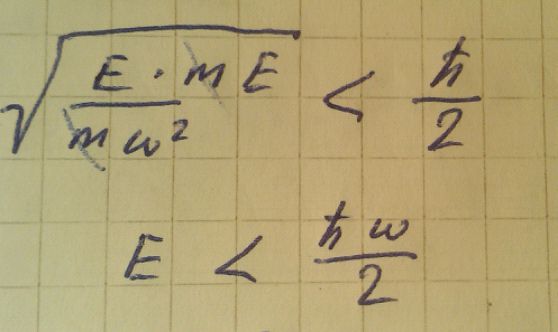 √(E · mE / mω²) < ħ/2
E < ħω/2